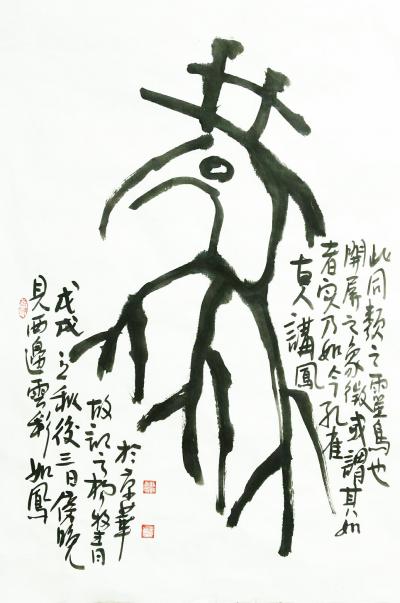 古人講鳳
者实乃如今孔雀
開屏之象徵或謂其如
此同類之靈鳥也
戊戌立秋後三日傍晚
見西邊雲彩如鳳
故記之楊牧青
於京華